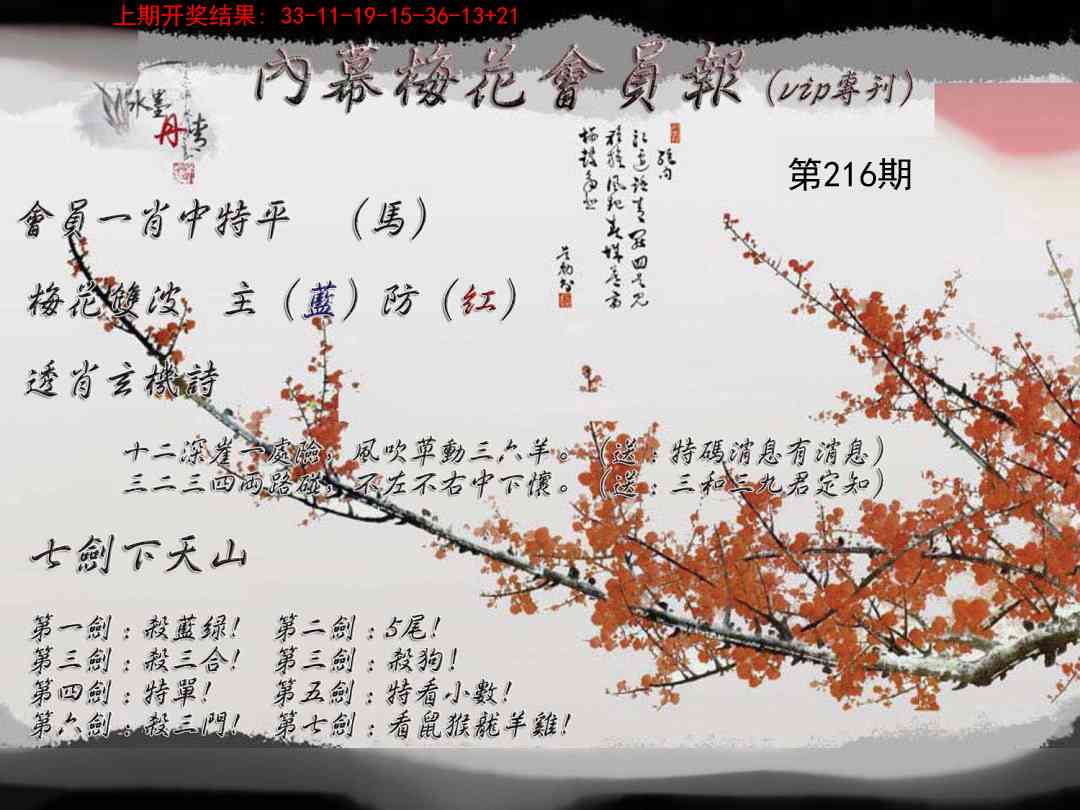 上期开奖结果: 33-11-19-15-36-13+21
內幕梅花會員報(vip專刊)
水墨丹青
第216期
會員一肖中特平 (馬)
梅花雙波 主(藍)防(紅)
透肖玄機詩
十二深崖一處險,風吹草動三六羊。(送:特碼消息有消息)
三二三四兩路碰,不左不右中下懷。(送:三和三九君定知)
七劍下天山
第一劍:殺藍绿! 第二劍:5尾!
第三劍:殺三合! 第三劍:殺狗!
第四劍:特單! 第五劍:特看小數!
第六劍:殺三門! 第七劍:看鼠猴龍羊雞!